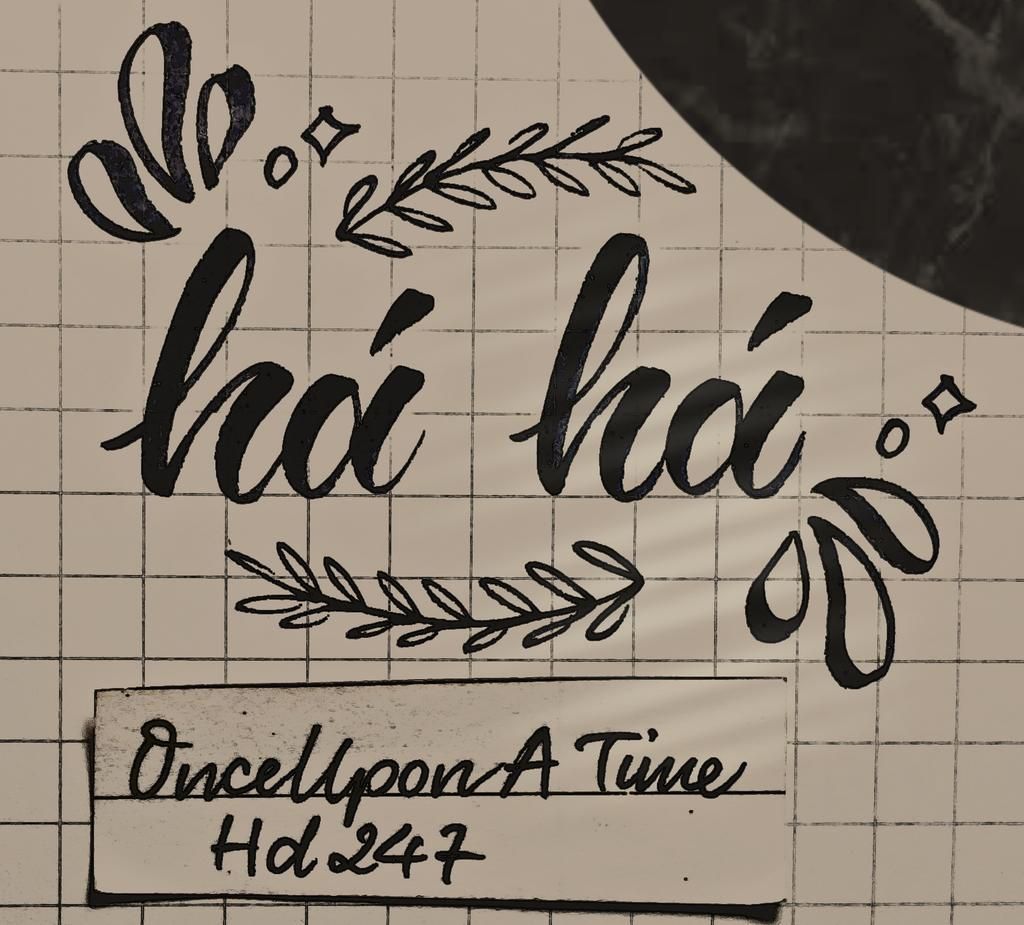 há há
OnceUpon A Time
Hd 247